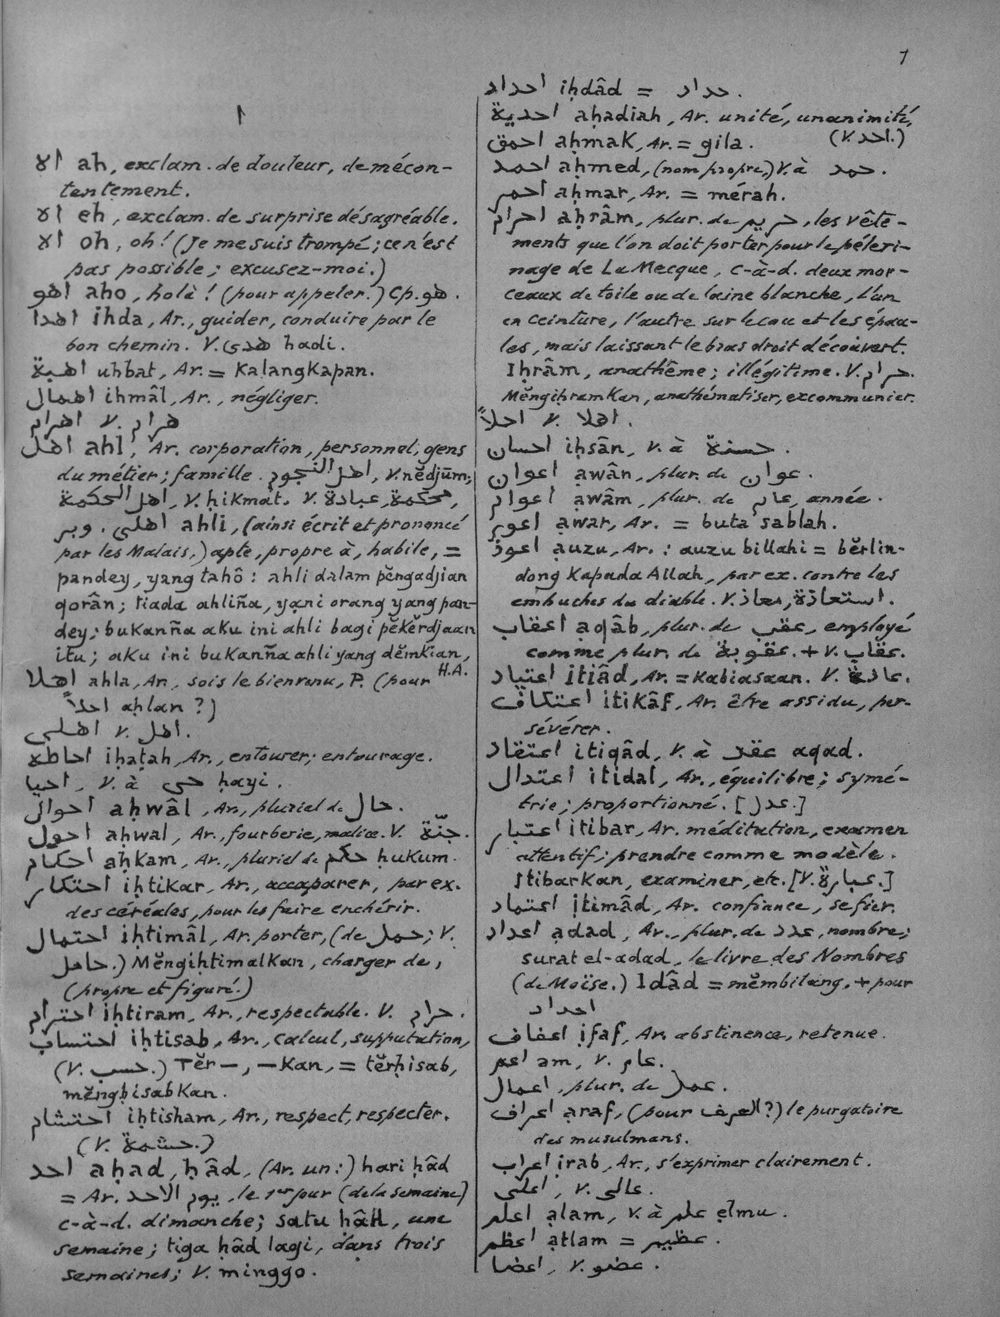 1
ا
اه ah, exclam. de douleur, de mécon-
tentement.
اه eh, exclam. de surprise désagréable.
اه oh, oh! (Je me suis trompé; ce n'est
pas possible; excusez-moi.)
اهو aho, holà! (pour appeler.) Cp. هو.
اهدا ihda, Ar., guider, conduire par le
bon chemin. V. هدى hadi.
اهبة uhbat, Ar. = kalangkapan.
اهمال ihmâl, Ar., négliger.
اهرام V. هرام
اهل ahl, Ar. corporation, personnel, gens
du métier; famille. اهل النجوم, V. nĕdjūm;
اهل الحكمة, V. ḥikmat. V. محكمة, عبادة,
وبر. اهلى ahli, (ainsi écrit et prononcé
par les Malais,) apte, propre à, habile, =
pandey, yang tahô: ahli dalam pĕngadjian
qorân; tiada ahliña, yani orang yang pan-
dey; bukanña aku ini ahli bagi pĕkĕrdjaan
itu; aku ini bukanña ahli yang dĕmkian,
H.A.
اهلا ahla, Ar., sois le bienvenu, P. (pour
احلاً aḥlan?)
اهلى V. اهل.
احاطه iḥaṭah, Ar., entourer; entourage.
احيا, V. à حى ḥayi.
احوال aḥwâl, Ar., pluriel de حال.
احول aḥwal, Ar., fourberie, malice. V. جنّة.
احكام aḥkam, Ar., pluriel de حكم ḥukum.
احتكار iḥtikar, Ar., accaparer, par ex.
des céréales, pour les faire enchérir.
احتمال iḥtimâl, Ar. porter, (de حمل; V.
حامل.) Mĕngiḥtimalkan, charger de,
(propre et figuré.)
احترام iḥtiram, Ar., respectable. V. حرام.
احتساب iḥtisab, Ar., calcul, supputation,
(V. حسب.) Tĕr—, —kan, = tĕrḥisab,
mĕngḥisabkan.
احتشام iḥtisham, Ar., respect, respecter.
(V. حشمة.)
احد aḥad, ḥâd, (Ar. un:) hari ḥâd
= Ar. يوم الاحد, le 1er jour (de la semaine)
c-à-d. dimanche; satu ḥâd, une
semaine; tiga ḥâd lagi, dans trois
semaines; V. minggo.
احداد iḥdâd = حداد.
احدية aḥadiah, Ar. unité, unanimité,
(V. احد.)
احمق aḥmak, Ar. = gila.
احمد aḥmed, (nom propre,) V. à حمد.
احمر aḥmar, Ar. = mérah.
احرام aḥrâm, plur. de حريم, les vête-
ments que l'on doit porter pour le pèleri-
nage de La Mecque, c-à-d. deux mor-
ceaux de toile ou de laine blanche, l'un
en ceinture, l'autre sur le cou et les épau-
les, mais laissant le bras droit découvert.
Iḥrâm, anathême; illégitime. V. حرام.
Mĕngiḥramkan, anathématiser, excommunier.
احلاً V. اهلا.
احسان iḥsân, V. à حسنة.
اعوان ạwân, plur. de عوان.
اعوام ạwâm, plur. de عام, année.
اعور ạwar, Ar. = buta sablah.
اعوذ ạuzu, Ar.: auzu billahi = bĕrlin-
dong kapada Allah, par ex. contre les
embuches du diable. V. استعاذة, معاذ.
اعقاب ạqâb, plur. de عقب, employé
comme plur. de عقوبة. + V. عقاب.
اعتياد ịtiâd, Ar. = kabiasaan. V. عادة.
اعتكاف ịtikâf, Ar. être assidu, per-
sévérer.
اعتقاد ịtiqâd, V. à عقد aqad.
اعتدال ịtidal, Ar., équilibre; symé-
trie; proportionné. [عدل.]
اعتبار ịtibar, Ar. méditation, examen
attentif; prendre comme modèle.
Itibarkan, examiner, etc. [V. عبارة.]
اعتماد ịtimâd, Ar. confiance, se fier.
اعداد ạdad, Ar., plur. de عدد, nombre;
surat el-adad, le livre des Nombres
(de Moïse.) Idâd = mĕmbilang. + pour
احداد
اعفاف ịfaf, Ar. abstinence, retenue.
اعم am, V. عام.
اعمال, plur. de عمل.
اعراف ạraf, (pour العرف?) le purgatoire
des musulmans.
اعراب ịrab, Ar., s'exprimer clairement.
اعلى, V. عالى.
اعلم ạlam, V. à علم ẹlmu.
اعظم ạtlam = عظيم.
اعضا, V. عضو.